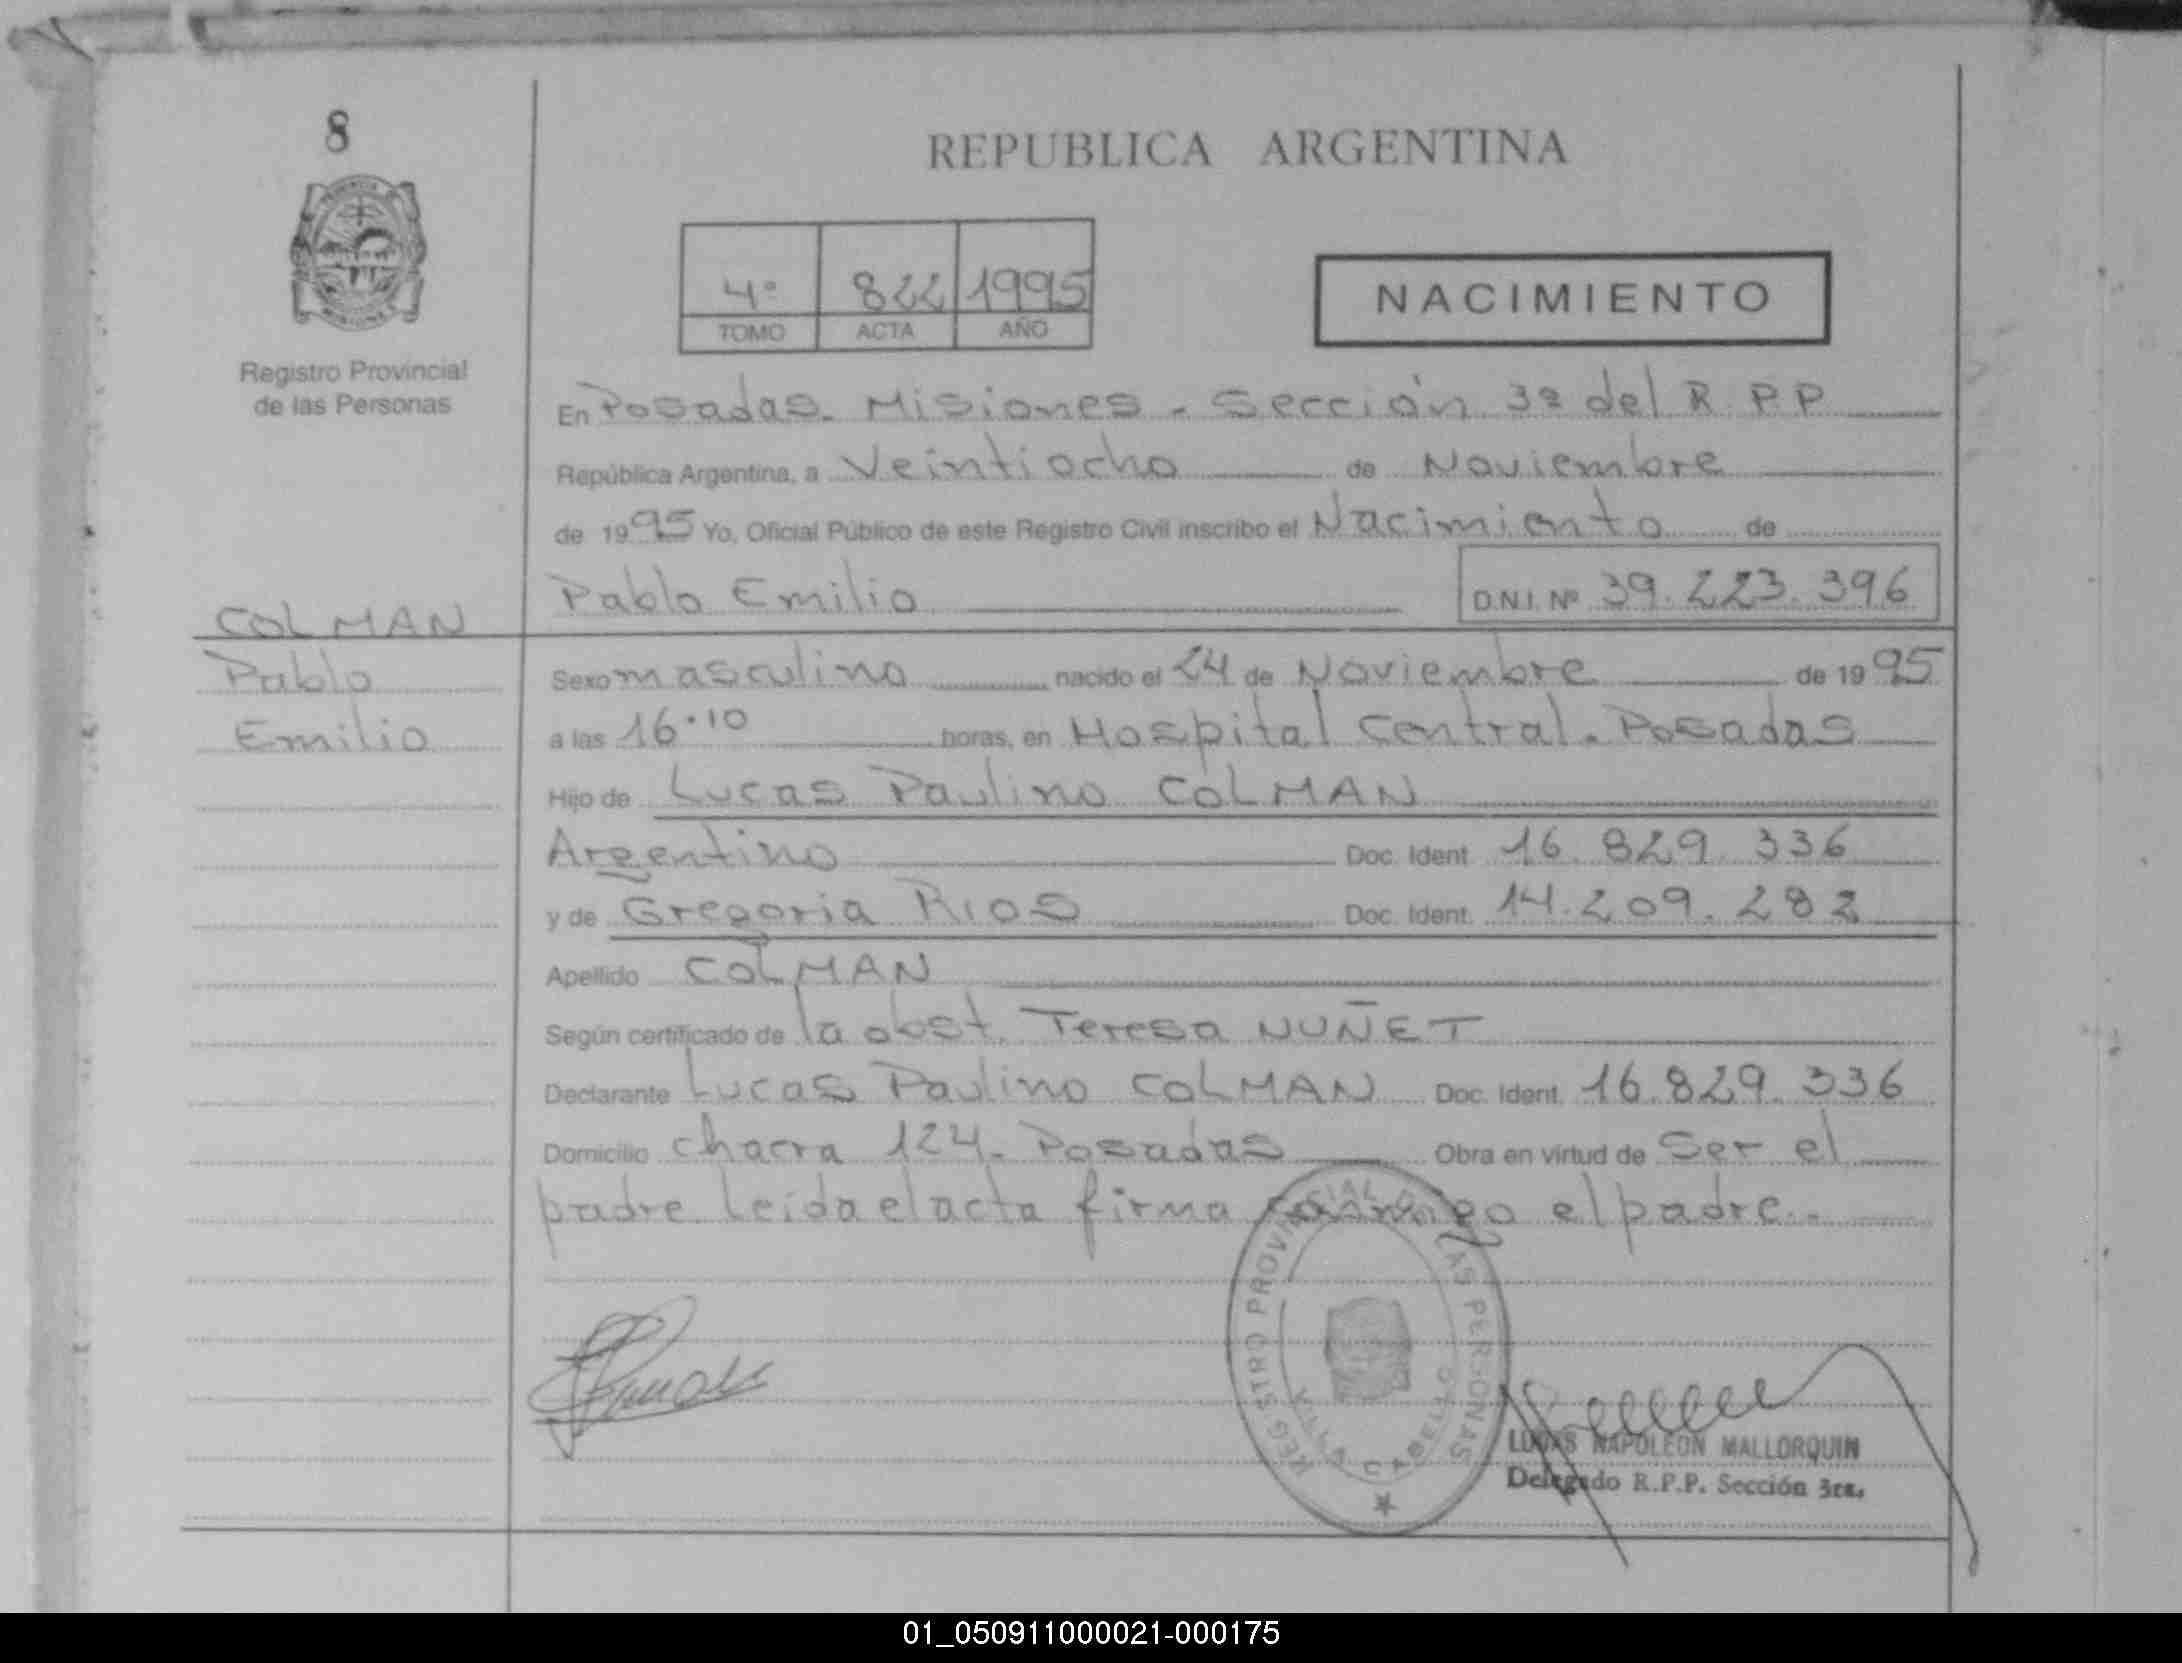 8
REPUBLICA ARGENTINA
4º 822 1995
TOMO ACTA AÑO
NACIMIENTO
Registro Provincial
de las Personas
En Posadas. Misiones - Sección 3ª del R.P.P
República Argentina, a Veintiocho de Noviembre
de 1995 Yo, Oficial Público de este Registro Civil inscribo el Nacimiento de
Pablo Emilio D.N.I. Nº 39.223.396
COLMAN
Pablo
Emilio
Sexo masculino nacido el 24 de Noviembre de 1995
a las 16.10 horas, en Hospital Central. Posadas
Hijo de Lucas Paulino COLMAN
Argentino Doc. Ident. 16.829.336
y de Gregoria RIOS Doc. Ident. 14.209.282
Apellido COLMAN
Según certificado de la obst. Teresa NUÑET
Declarante Lucas Paulino COLMAN Doc. Ident. 16.829.336
Domicilio chacra 124. Posadas Obra en virtud de Ser el
padre leida el acta firma conmigo el padre.-
REGISTRO PROVINCIAL DE LAS PERSONAS
VILLA CABELLO
LUCAS NAPOLEON MALLORQUIN
Delegado R.P.P. Sección 3ra.
01_050911000021-000175